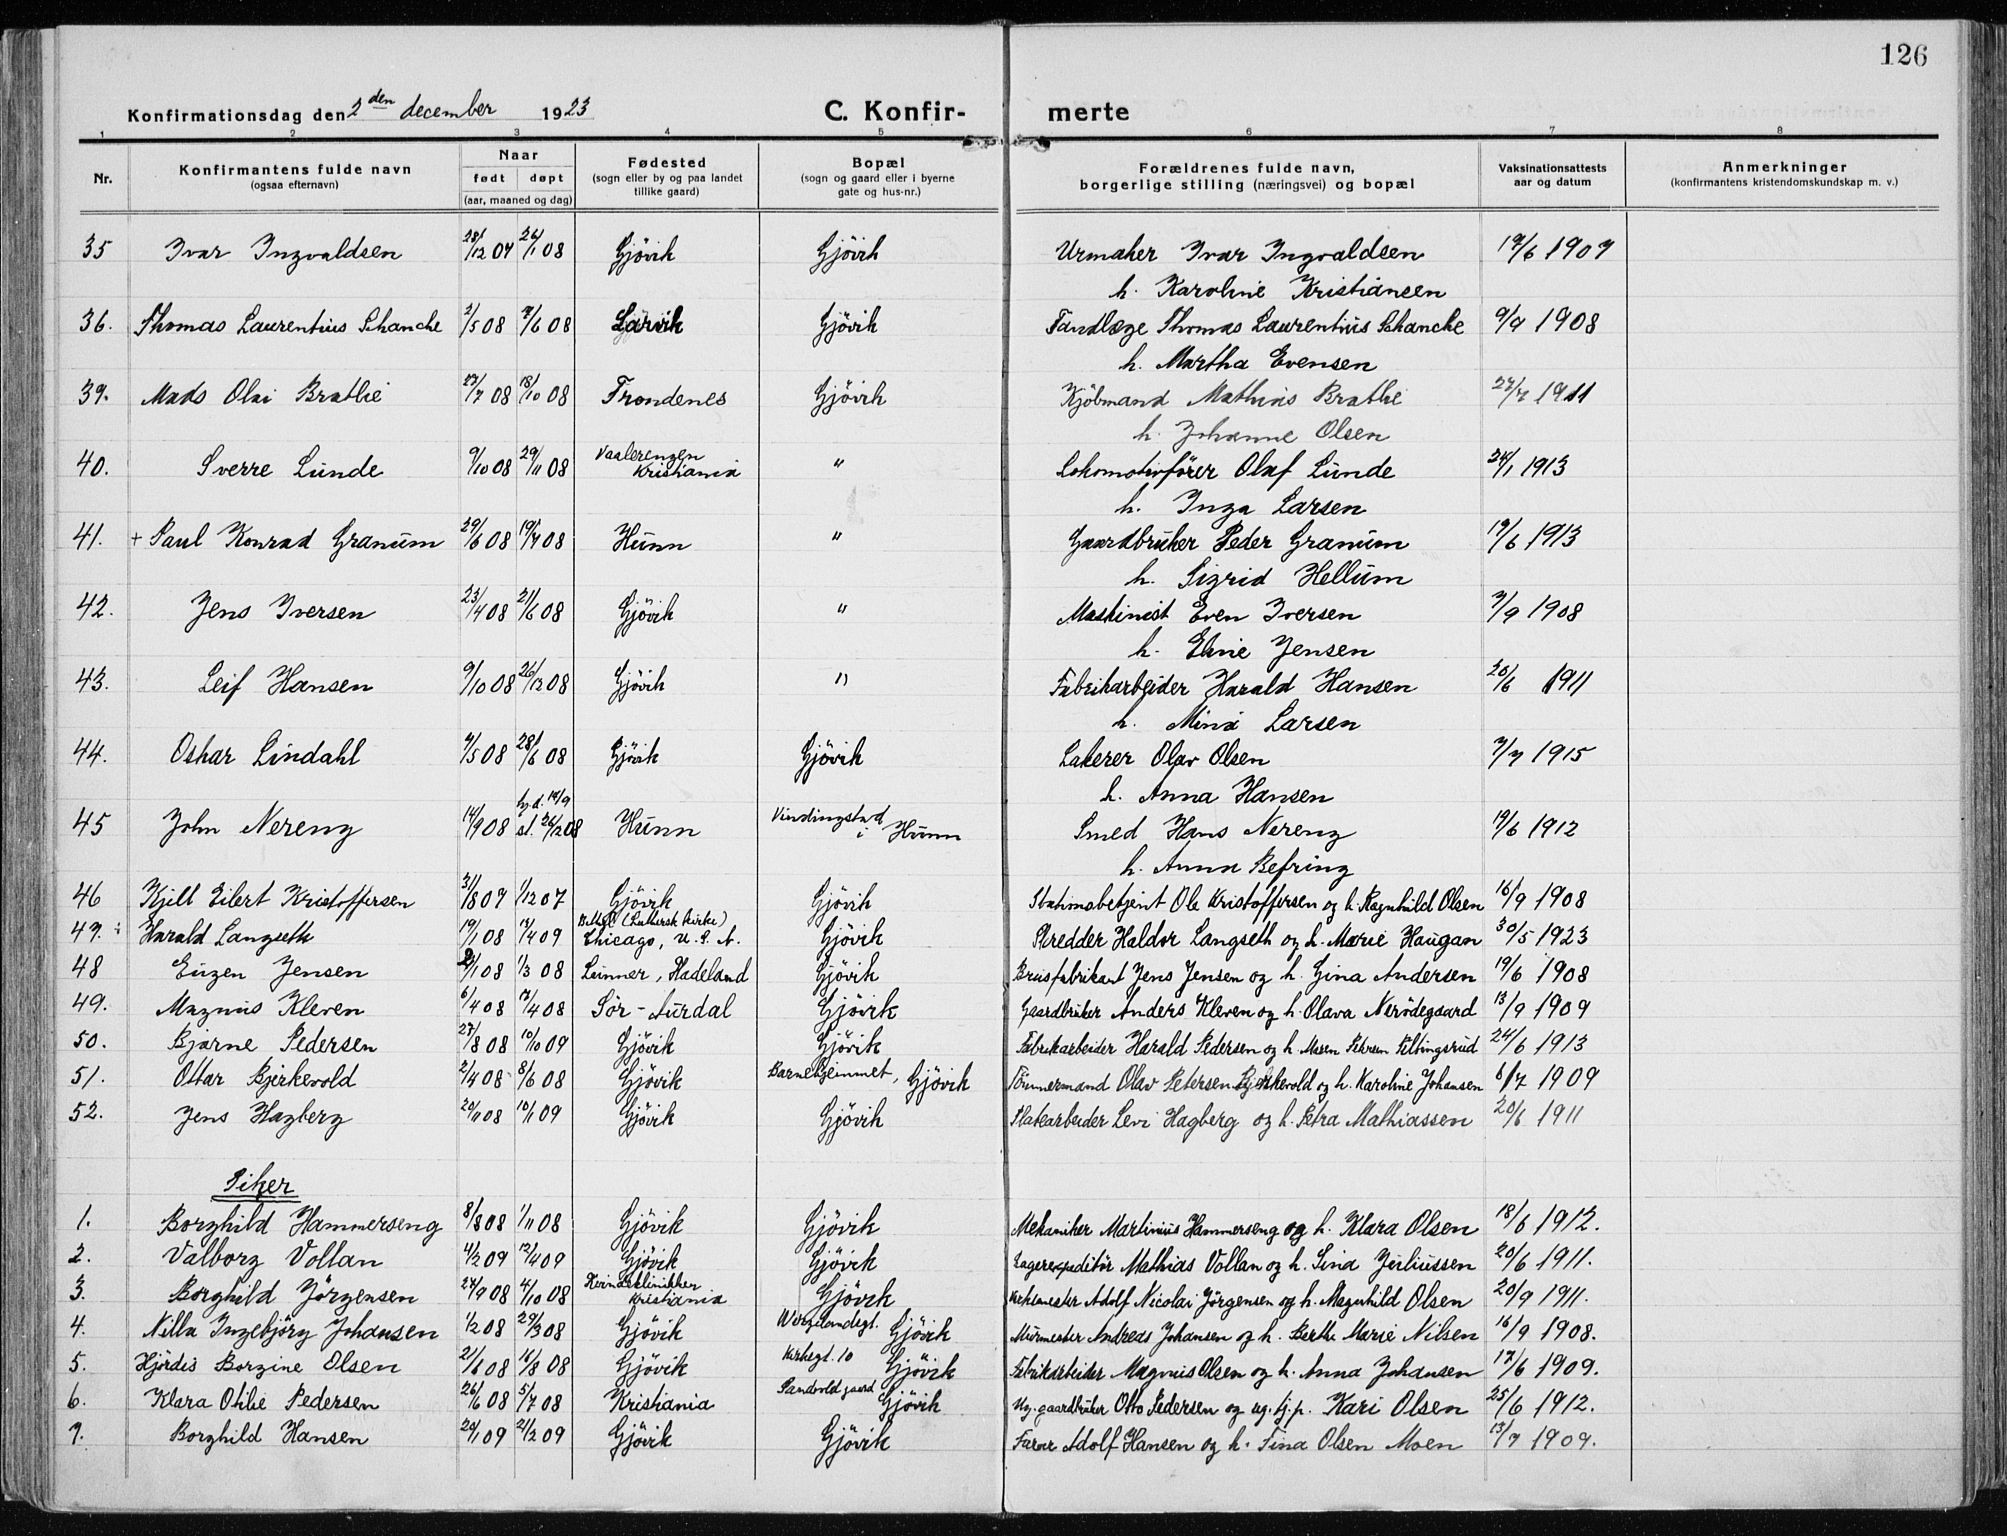 126
Konfirmationsdag den 2den december 1923
C. Konfir- merte
1 2 3 4 5 6 7 8
Nr. Konfirmantens fulde navn (ogsaa efternavn) Naar født døpt (aar, maaned og dag) Fødested (sogn eller by og paa landet tillike gaard) Bopæl (sogn og gaard eller i byerne gate og hus-nr.) Forældrenes fulde navn, borgerlige stilling (næringsvei) og bopæl Vaksinationsattests aar og datum Anmerkninger (konfirmantens kristendomskundskap m. v.)
35 Ivar Ingvaldsen 28/12 07 26/1 08 Gjövik Gjövik Urmaker Ivar Ingvaldsen 17/6 1907
h. Karoline Kristiansen
36. Thomas Laurentius Schanche 2/5 08 7/6 08 Larvik Gjövik Tandlæge Thomas Laurentius Schanche 9/9 1908
h. Martha Evensen
39. Mads Olai Brathe 27/7 08 18/10 08 Trondenes Gjövik Kjöbmand Mathias Brathe 27/7 1911
h. Johanne Olsen
40. Sverre Lunde 9/10 08 29/11 08 Vaalerengen Kristiania " Lokomotivförer Olaf Lunde 24/1 1913
h. Inga Larsen
41. + Paul Konrad Granum 29/6 08 19/7 08 Hunn " Gaardbruker Peder Granum 19/6 1913
h. Sigrid Hellum
42. Jens Iversen 23/4 08 21/6 08 Gjövik " Maskinist Even Iversen 7/9 1908
h. Eline Jensen
43. Leif Hansen 9/10 08 26/12 08 Gjövik " Fabrikarbeider Harald Hansen 20/6 1911
h. Mina Larsen
44. Oskar Lindahl 4/5 08 28/6 08 Gjövik Gjövik Lakerer Olav Olsen 7/7 1915
h. Anna Hansen
45 John Nereng 14/9 08 hj.d. 14/9 st. 26/12 08 Hunn Vindingstad i Hunn Smed Hans Nereng 19/6 1912
h. Anna Befring
46 Kjell Eilert Kristoffersen 31/8 07 1/12 07 Gjövik Gjövik Stationsbetjent Ole Kristoffersen og h. Ragnhild Olsen 16/9 1908
47. Harald Langseth 19/1 08 11/4 09 (Luthersk kirke) Chicago, U. S. A. Gjövik Skredder Haldor Langseth og h. Marie Haugan 30/5 1923
48 Eugen Jensen 2/1 08 1/3 08 Lunner, Hadeland Gjövik Brusfabrikant Jens Jensen og h. Gina Andersen 19/6 1908
49. Magnus Kleven 6/4 08 7/4 08 Sör-Aurdal Gjövik Gaardbruker Anders Kleven og h. Olava Nerödegaard 13/9 1909
50. Bjarne Pedersen 27/8 08 10/10 09 Gjövik Gjövik Fabrikarbeider Harald Pedersen og h. Maren Petersen Piltingsrud 24/6 1913
51. Ottar Bjerkevold 2/4 08 8/6 08 Gjövik Barnehjemmet, Gjövik Tömmermand Olav Petersen Bjerkevold og h. Karoline Johansen 6/7 1909
52. Jens Hagberg 20/11 08 10/1 09 Gjövik Gjövik Platearbeider Levi Hagberg og h. Petra Mathiassen 20/6 1911
Piker
1. Borghild Hammerseng 8/8 08 1/11 08 Gjövik Gjövik Mekaniker Martinius Hammerseng og h. Klara Olsen 18/6 1912.
2. Valborg Vollan 4/2 09 12/4 09 Gjövik Gjövik Lagerexpeditör Mathias Vollan og h. Sina Juliussen 20/6 1911.
3. Borghild Jörgensen 24/9 08 4/10 08 Kvindeklinikken Kristiania Gjövik Adolf Nicolai Jörgensen og h. Magnhild Olsen 20/9 1911.
4. Nilla Ingebjörg Johansen 1/2 08 29/3 08 Gjövik Wergelandsgt. Gjövik Murmester Andreas Johansen og h. Berthe Marie Nilsen 16/9 1908.
5. Hjördis Borgine Olsen 21/6 08 16/8 08 Gjövik Kirkegt. 10 Gjövik Fabrikarbeider Magnus Olsen og h. Anna Johansen 17/6 1909.
6. Klara Otilie Pedersen 26/6 08 5/7 08 Kristiania Sandvold gaard Gjövik Ug. gaardbruker Otto Pedersen og ug. tj. p. Kari Olsen 25/6 1912.
7. Borghild Hansen 20/1 09 21/2 09 Gjövik Gjövik Farver Adolf Hansen og h. Tina Olsen Moen 13/7 1909.